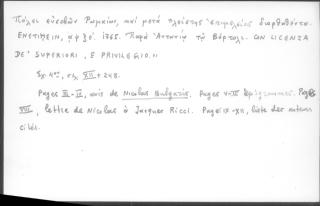 πόλει εὐσεβῶν Ρωμαίων, καὶ μετὰ πλείστης ἐπιμελείας διορθωθέντα.
ΕΝΕΤΙΗΣΙΝ, 1765. Παρὰ Ἀντωνίῳ τῷ Βόρτολι. CON LICENZA
DE' SUPERIORI, E PRIVILEGIO.»
In 4°, XII + 248.
Pages III-IV, avis de Nicolas Bulgaris. Pages V-VII épigrammes. Page
VIII, lettre de Nicolas à Jacques Ricci. Pages IX-XII, liste des auteurs
cités.